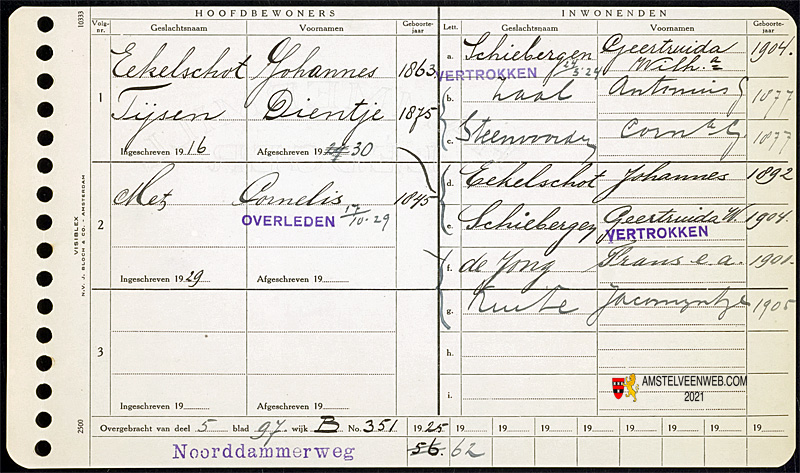 HOOFDBEWONERS INWONENDEN
Volg-nr. Geslachtsnaam Voornamen Geboorte-jaar Lett. Geslachtsnaam Voornamen Geboorte-jaar
10333
1
Eekelschot Johannes 1863
Tijsen Dientje 1875
Ingeschreven 1916 Afgeschreven 19 30
2
Met Cornelis 1845
OVERLEDEN 17/10-29
Ingeschreven 1929 Afgeschreven 19
3
Ingeschreven 19 Afgeschreven 19
a. Schiebergen Geertruida Wilh.a 1904.
VERTROKKEN 24/5-24
b. Zaal Antonius G 1877
c. Corn 1877
d. Eekelschot Johannes 1892
e. Schiebergen Geertruida W. 1904.
VERTROKKEN
f. de Jong Frans e.a. 1901.
g. Jacomijntje 1905
h.
i.
AMSTELVEENWEB.COM
2021
VISIBLEX
N.V. J. BLOCH & CO. AMSTERDAM
2500
Overgebracht van deel 5 blad 97. wijk B No. 351 1925 19 19 19 19 19 19 19 19
Noorddammerweg 56. 62